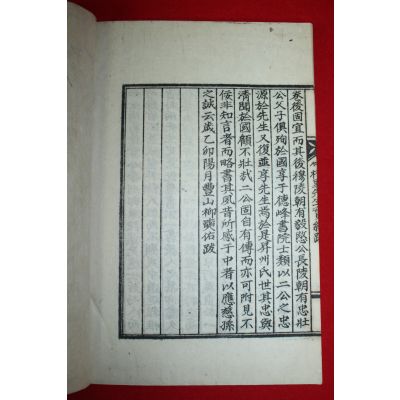 泰後固宜而其後穆陵朝有毅愍公長陵朝有忠壯
公父子俱殉於國享于德峰書院士類以二公之忠
源於先生又復並享先生焉於是昇州氏世其忠與
淸聞於國顧不壯哉二公固自有傳而亦可附見不
佞非知言者而略書其風昔所感于中者以應慈孫
之誠云歲乙卯陽月豐山柳 佑跋